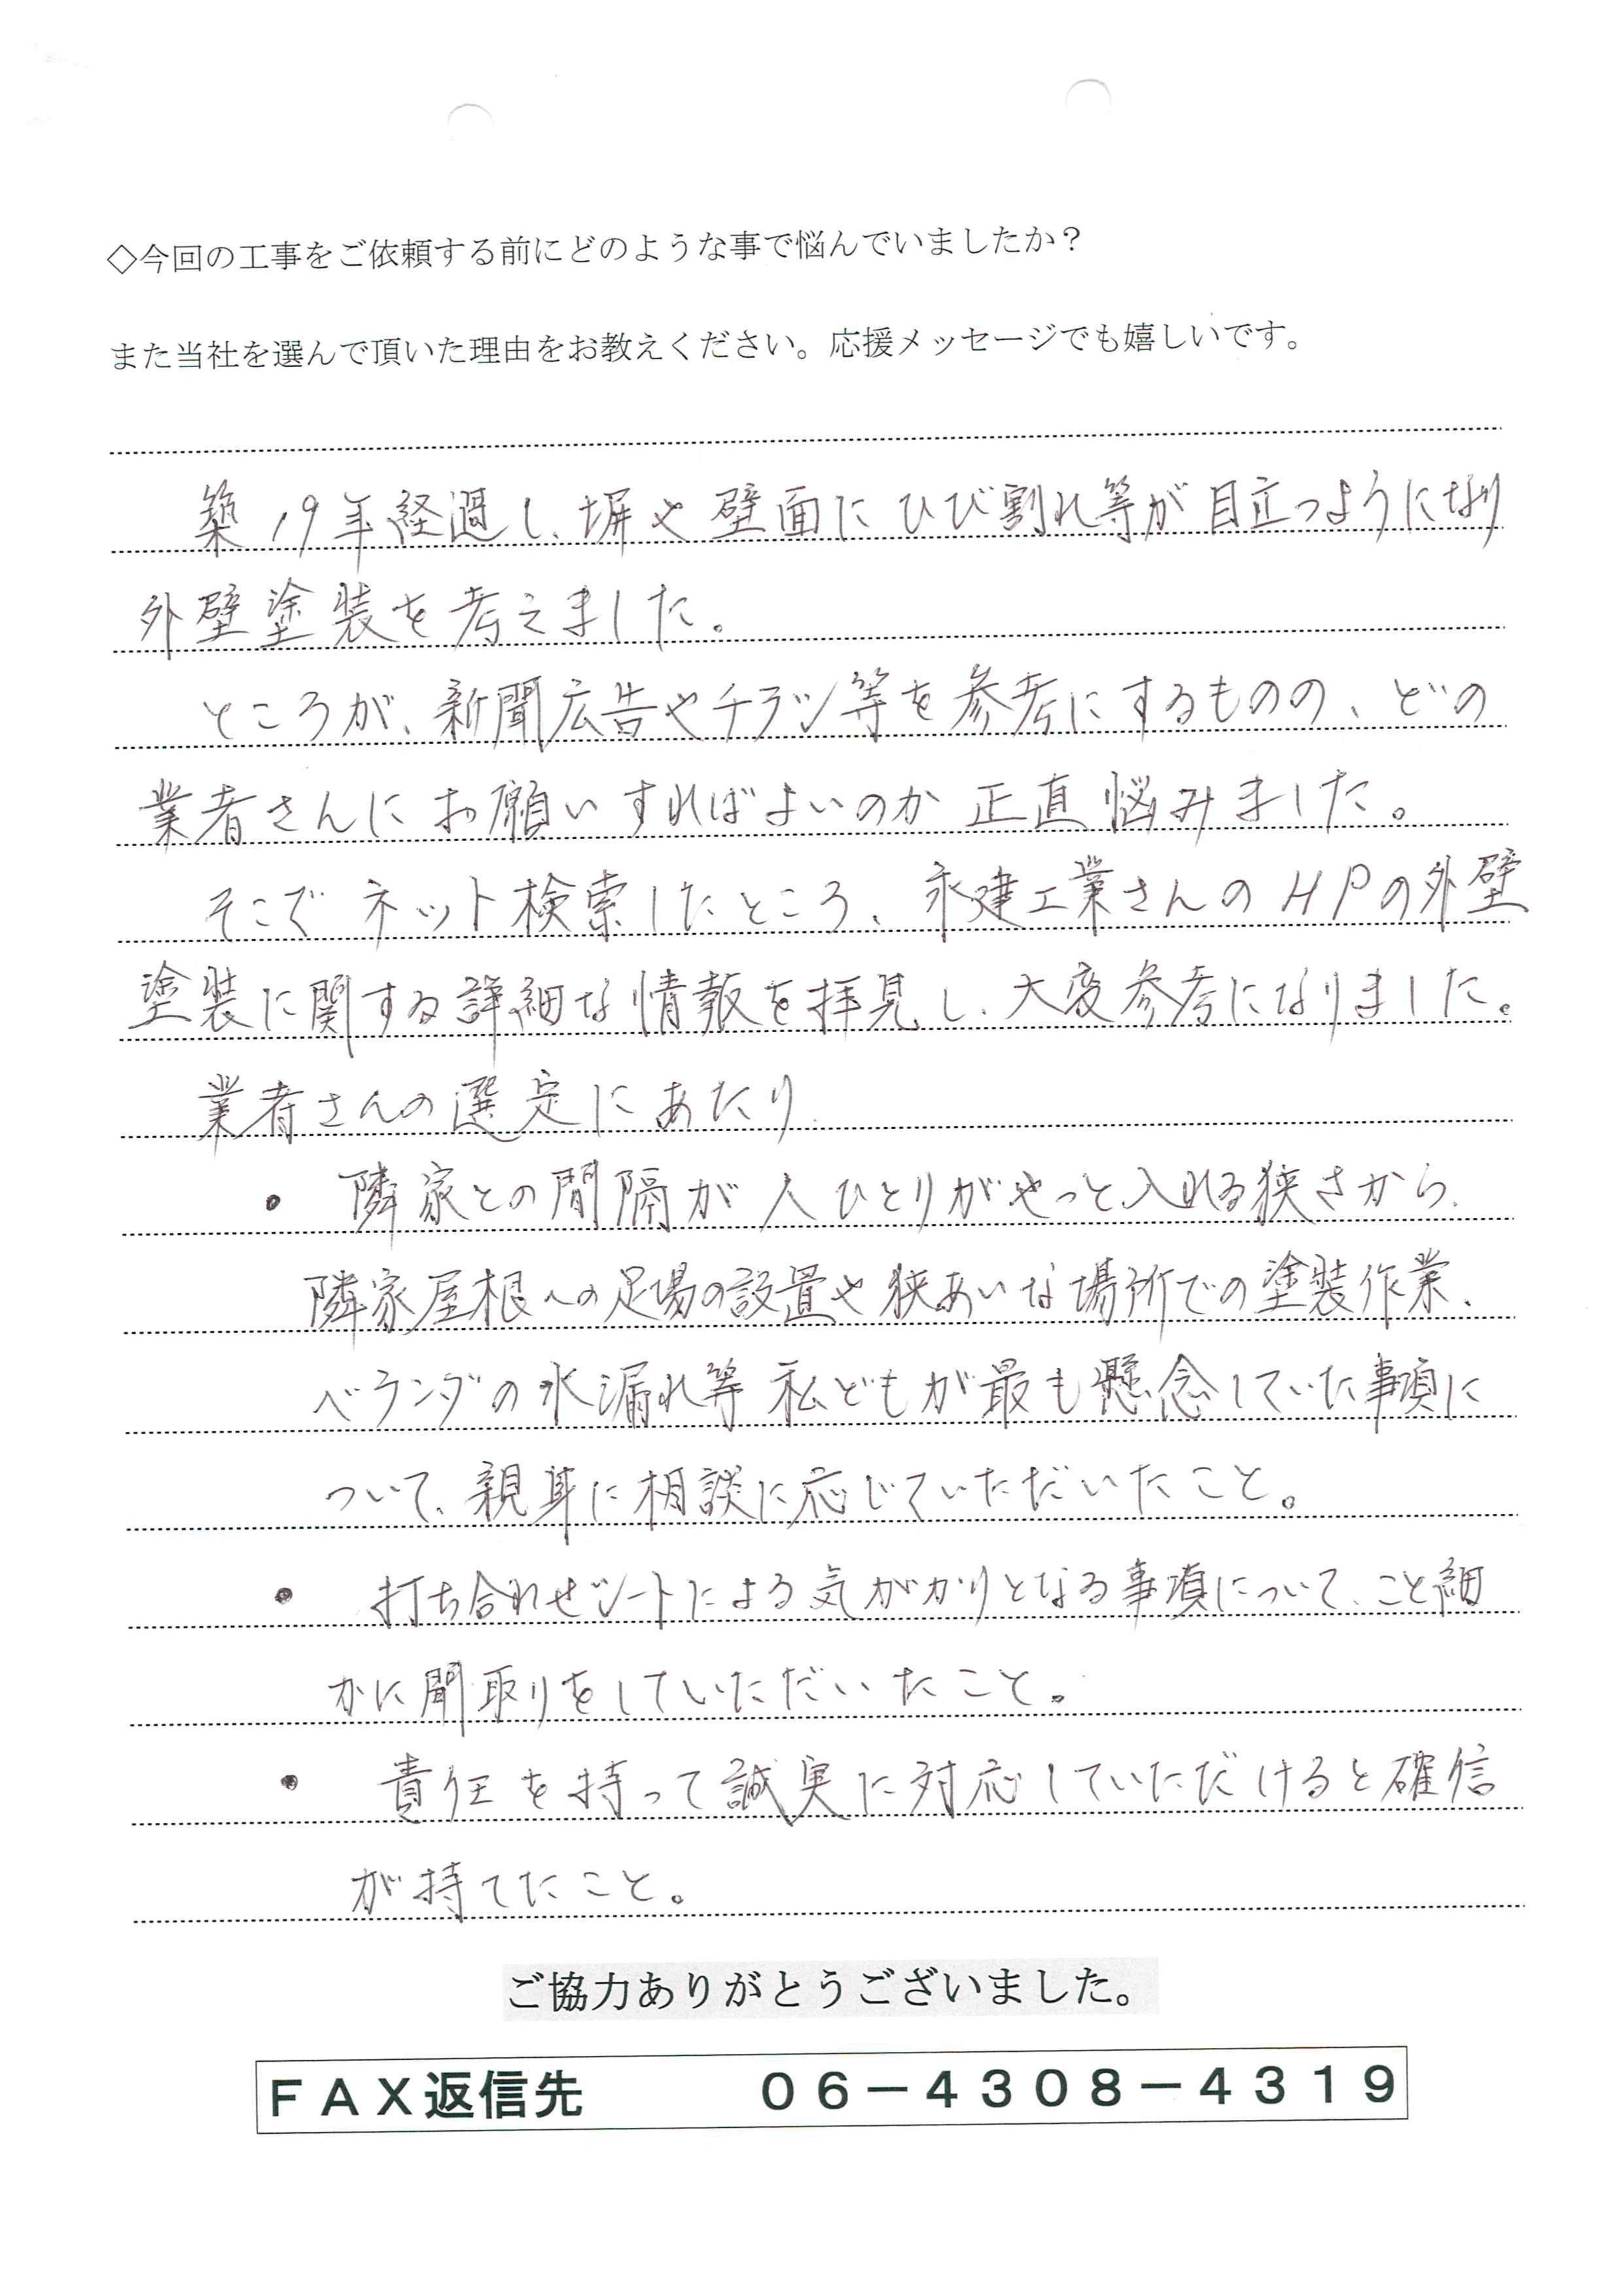 ◇今回の工事をご依頼する前にどのような事で悩んでいましたか？
また当社を選んで頂いた理由をお教えください。応援メッセージでも嬉しいです。
築19年経過し、塀や壁面にひび割れ等が目立つようになり
外壁塗装を考えました。
ところが、新聞広告やチラシ等を参考にするものの、どの
業者さんにお願いすればよいのか正直悩みました。
そこでネット検索したところ、永建工業さんのHPの外壁
塗装に関する詳細な情報を拝見し、大変参考になりました。
業者さんの選定にあたり、
・隣家との間隔が人ひとりがやっと入れる狭さから、
隣家屋根への足場の設置や狭あいな場所での塗装作業、
ベランダの水漏れ等私どもが最も懸念していた事項に
ついて、親身に相談に応じていただいたこと。
・打ち合わせシートによる気がかりとなる事項について、こと細
かに聞取りをしていただいたこと。
・責任を持って誠実に対応していただけると確信
が持てたこと。
ご協力ありがとうございました。
ＦＡＸ返信先　０６－４３０８－４３１９